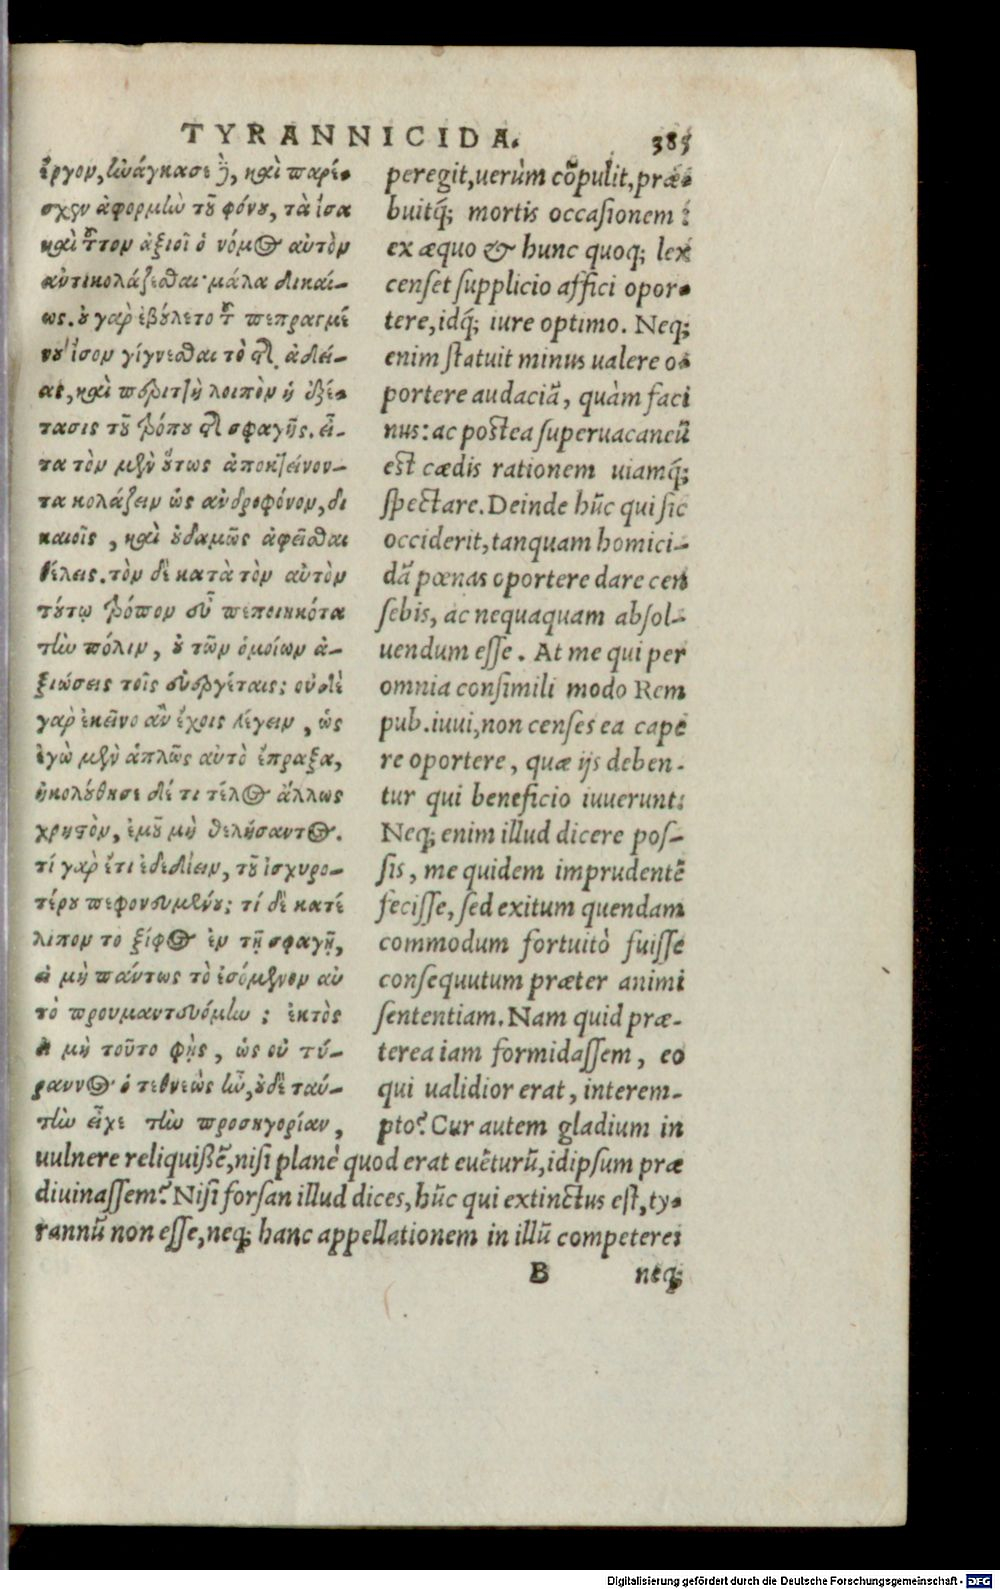 TYRANNICIDA. 385
ἔργον, ἠνάγκασε δὲ, καὶ παρέ-
σχεν ἀφορμὴν τοῦ φόνου, τὰ ἴσα
καὶ τοῦτον ἀξιοῖ ὁ νόμος αὐτὸν
ἀντικολάζεσθαι· μάλα δικαί-
ως. οὐ γὰρ ἐβούλετο τοῦ πεπραγμέ
νου ἴσον γίγνεσθαι τὸ τῆς ἀδεί-
ας, καὶ περιττὴ λοιπὸν ἡ ἐξέ-
τασις τοῦ τρόπου τῆς σφαγῆς. εἶ-
τα τὸν μὲν οὕτως ἀποκτείνον-
τα κολάζειν ὡς ἀνδροφόνον, δι
καιοῖς, καὶ οὐδαμῶς ἀφεῖσθαι
θέλεις. τὸν δὲ κατὰ τὸν αὐτὸν
τούτῳ τρόπον εὖ πεποιηκότα
τὴν πόλιν, οὐ τῶν ὁμοίων ἀ-
ξιώσεις τοῖς εὐεργέταις; οὐδὲ
γὰρ ἐκεῖνο ἂν ἔχοις λέγειν, ὡς
ἐγὼ μὲν ἁπλῶς αὐτὸ ἔπραξα,
ἠκολούθησε δέ τι τέλος ἄλλως
χρηστὸν, ἐμοῦ μὴ θελήσαντος.
τί γὰρ ἔτι ἐδεδίειν, τοῦ ἰσχυρο-
τέρου πεφονευμένου; τί δὲ κατέ
λιπον τὸ ξίφος ἐν τῇ σφαγῇ,
εἰ μὴ πάντως τὸ ἐσόμενον αὐ
τὸ προυμαντευόμην; ἐκτὸς
εἰ μὴ τοῦτο φῂς, ὡς οὐ τύ-
ραννος ὁ τεθνεὼς ἦν, οὐδὲ ταύ-
τὴν εἶχε τὴν προσηγορίαν,
peregit, uerùm cōpulit, præ-
buitq́; mortis occasionem:
ex æquo & hunc quoq; lex
censet supplicio affici opor-
tere, idq́; iure optimo. Neq;
enim statuit minus ualere o-
portere audaciā, quàm faci
nus: ac postea superuacaneū
est cædis rationem uiamq́;
spectare. Deinde hūc qui sic
occiderit, tanquam homici-
dā pœnas oportere dare cen
sebis, ac nequaquam absol-
uendum esse. At me qui per
omnia consimili modo Rem
pub. iuui, non censes ea cape
re oportere, quæ ijs deben-
tur qui beneficio iuuerunt:
Neq; enim illud dicere pos-
sis, me quidem imprudentē
fecisse, sed exitum quendam
commodum fortuitò fuisse
consequutum præter animi
sententiam. Nam quid præ-
terea iam formidassem, eo
qui ualidior erat, interem-
pto? Cur autem gladium in
uulnere reliquissē, nisi planè quod erat euēturū, idipsum præ
diuinassem? Nisi forsan illud dices, hūc qui extinctus est, ty-
rannū non esse, neq; hanc appellationem in illū competere:
B neq;
Digitalisierung gefördert durch die Deutsche Forschungsgemeinschaft - DFG